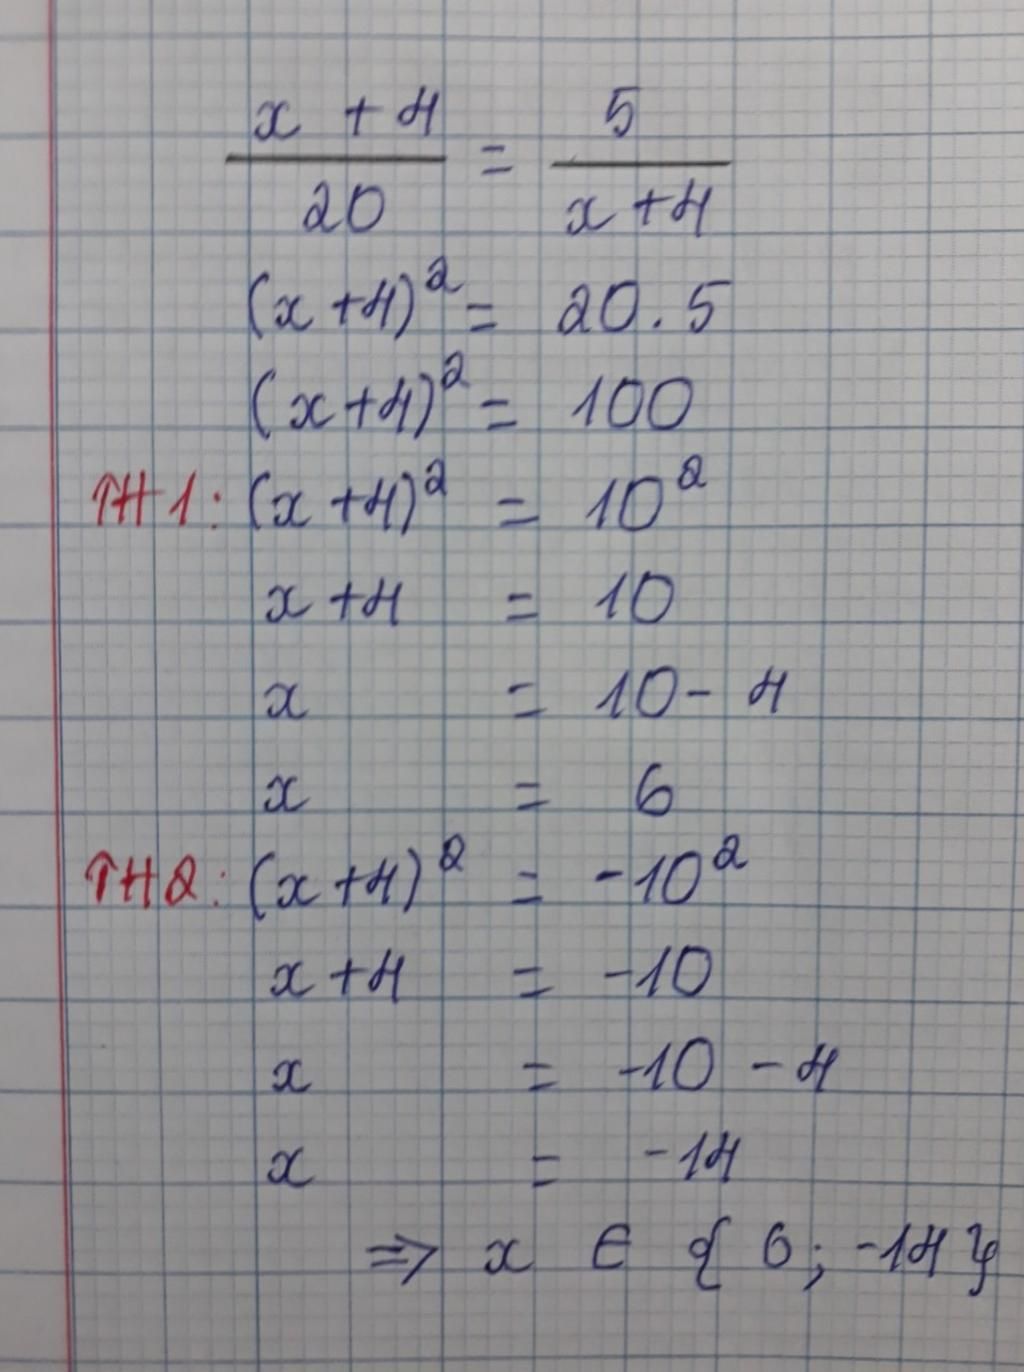 x + 4 / 20 = 5 / x + 4
(x + 4)² = 20 . 5
(x + 4)² = 100
TH1: (x + 4)² = 10²
x + 4 = 10
x = 10 - 4
x = 6
TH2: (x + 4)² = -10²
x + 4 = -10
x = -10 - 4
x = -14
⇒ x ∈ { 6; -14 }